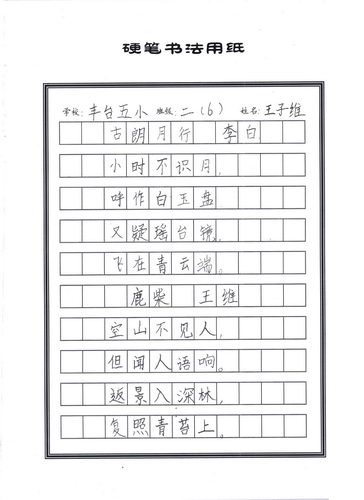 硬笔书法用纸
学校:丰台五小 班级:二(6) 姓名:王子维
古朗月行 李白
小时不识月,
呼作白玉盘
又疑瑶台镜,
飞在青云端。
鹿柴 王维
空山不见人,
但闻人语响。
返景入深林,
复照青苔上。